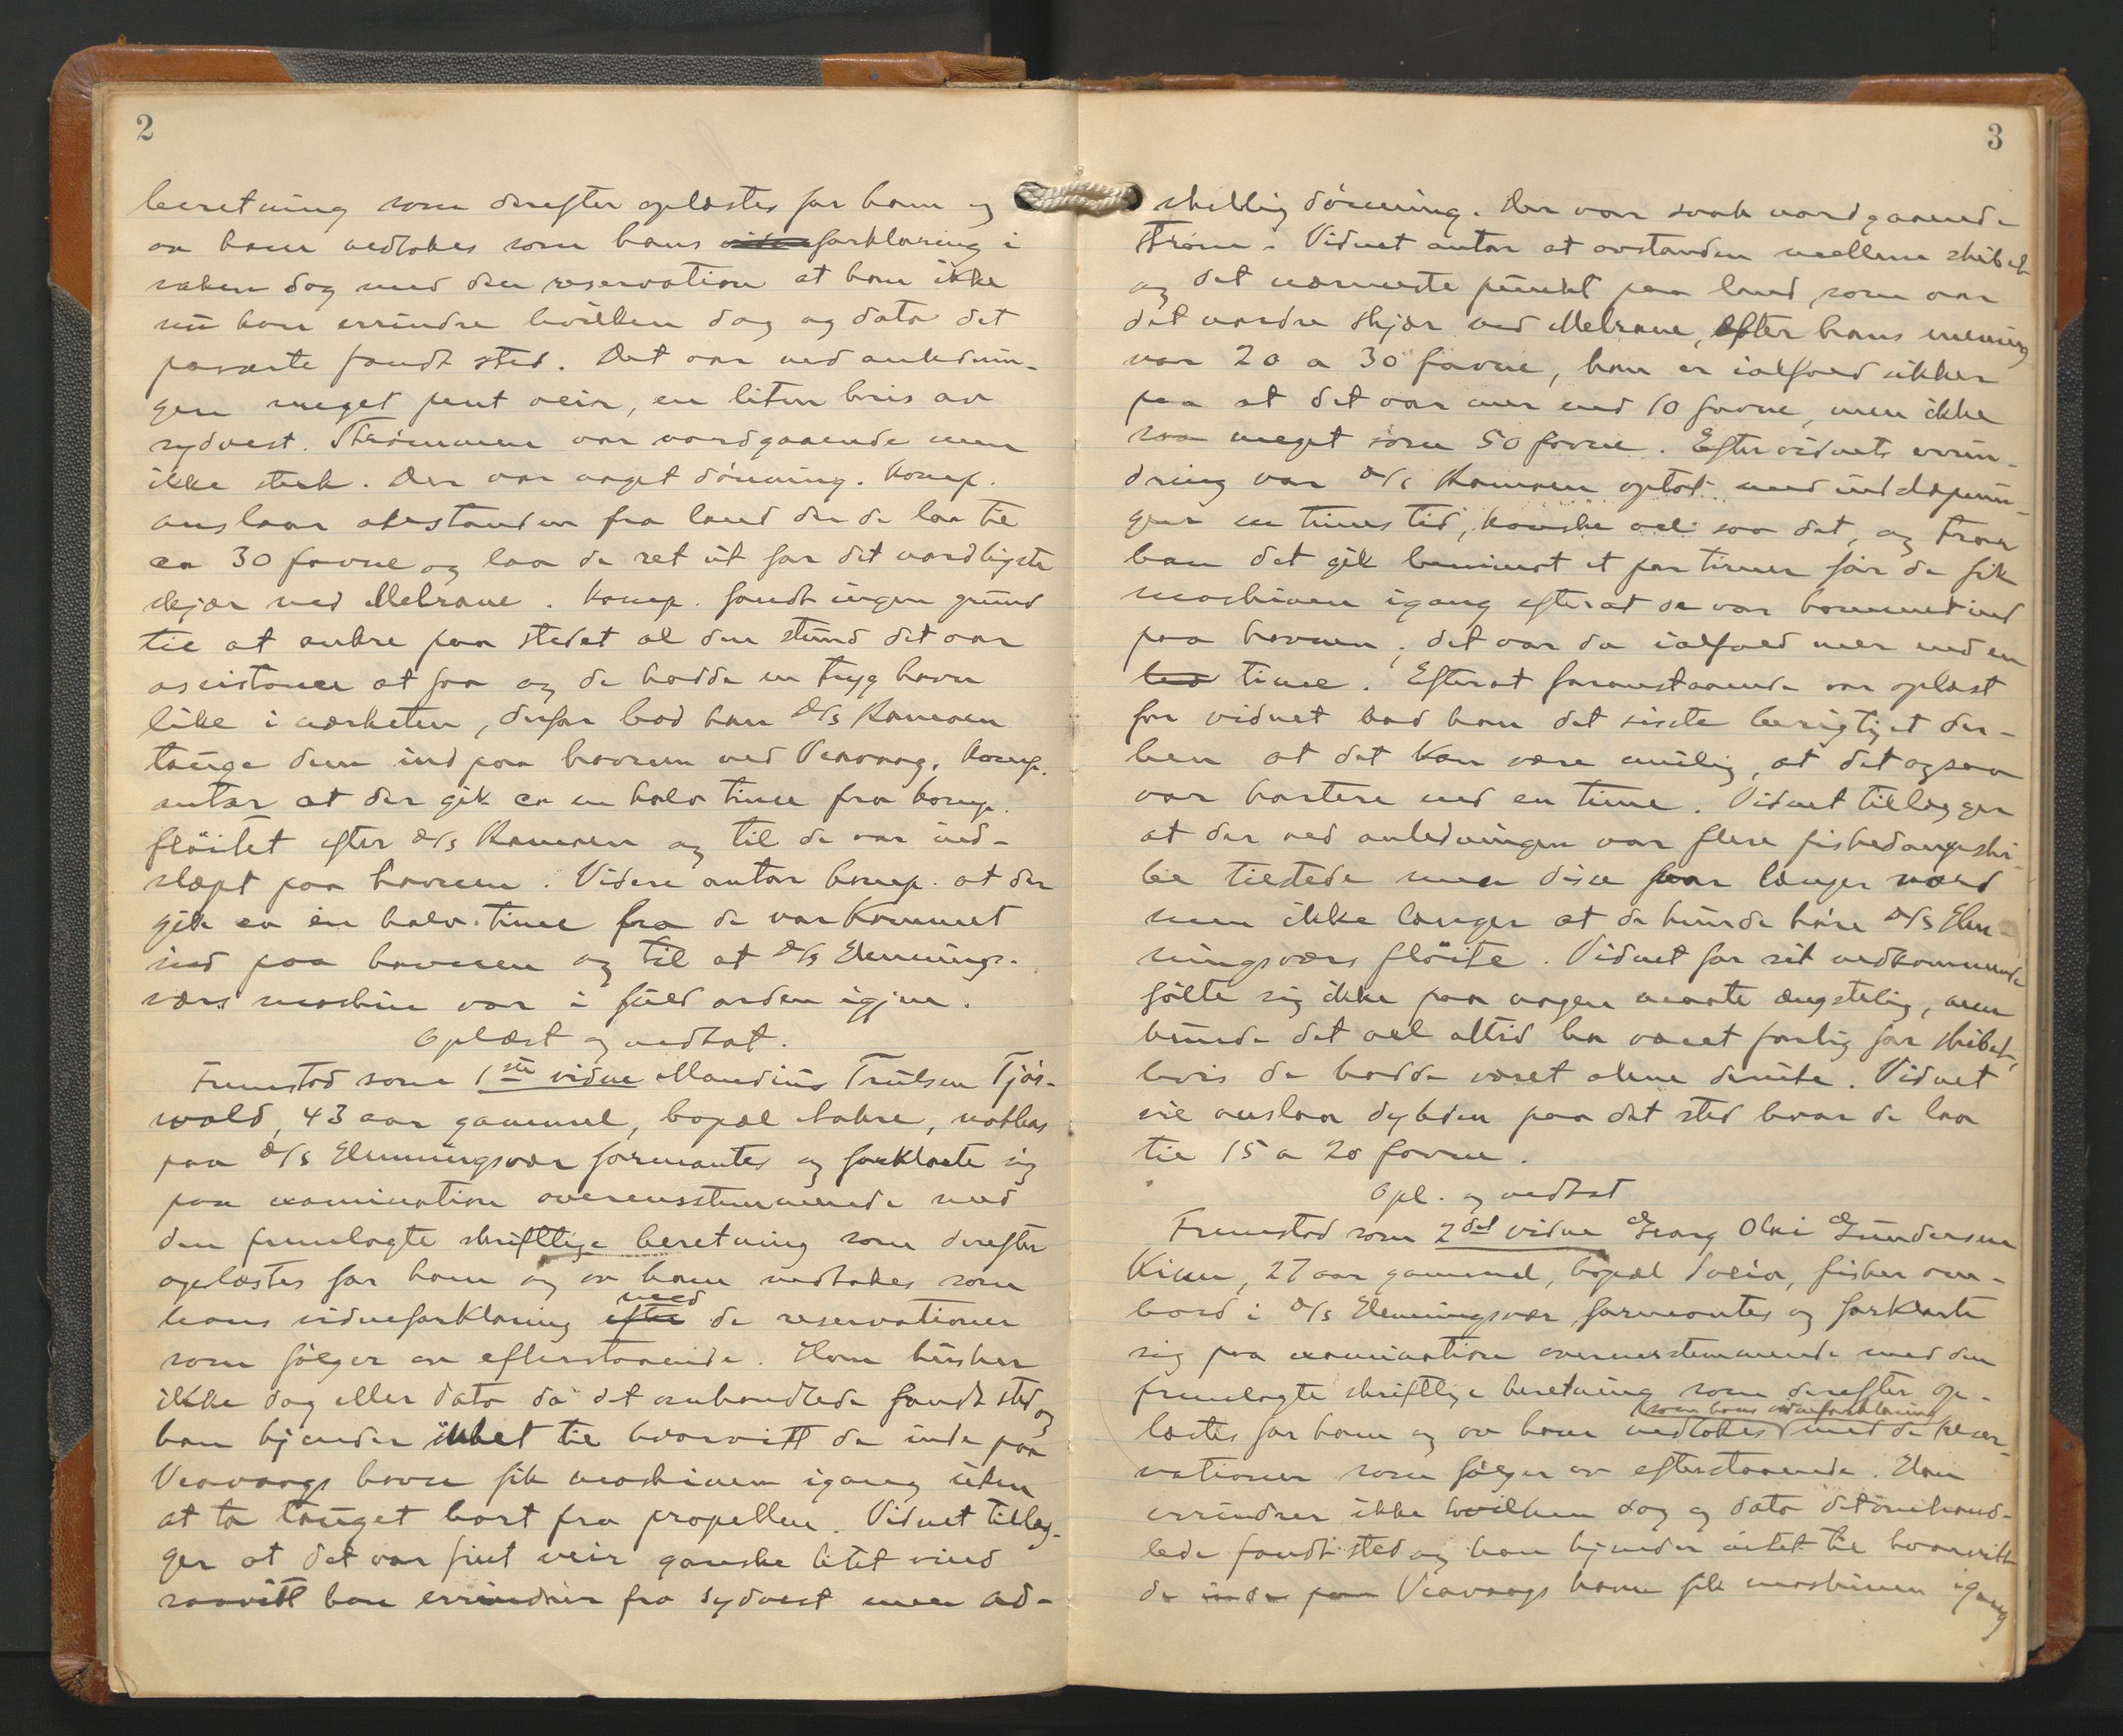 2
beretning som derefter oplæstes for ham og
av ham vedtokes som hans forklaring i
saken dog med den reservation at han ikke
nu kan errindre hvilken dag og dato det
passerte fandt sted. Det var ved anlednin-
gen meget pent veir, en liten bris av
sydvest. Strømmen var nordgaaende men
ikke sterk. Der var noget dønning. Komp.
anslaar avstanden fra land der de laa til
ca 30 favne og laa de ret ut for det nordligste
skjær ved Melrane. Komp. fandt ingen grund
til at ankre paa stedet al den stund det var
assistance at faa og de hadde en tryg havn
like i nærheten, derfor bad han D/s Ramoen
tauge dem ind paa havnen ved Veavaag. Komp.
antar at der gik ca en halv time fra komp.
fløitet efter D/s Ramoen og til de var ind-
slæpt paa havnen. Videre antar komp. at der
gik ca en halv time fra de var kommet
ind paa havnen og til at D/s Henningsvær-
værs maskin var i fuld orden igjen.
Oplæst og vedtat.
Fremstod som 1ste vidne Maudius Trulsen Tjøs-
wold, 43 aar gammel, bopæl Aakre, notbas
paa D/s Henningsvær formantes og forklarte sig
paa examination overensstemmende med
den fremlagte skriftlige beretning som derefter
oplæstes for ham og av ham vedtokes som
hans vidneforklaring efter med de reservationer
som følger av efterstaaende. Han husker
ikke dag eller dato da det omhandlede fandt sted og
han kjender ikket til hvorvidt de inde paa
Veavaags havn fik maskinen igang uten
at ta tauget bort fra propellen. Vidnet tillæg-
ger at det var fint veir ganske litet vind
saavidt han errindrer fra sydvest men ad-
3
skillig dønning. Der var svak nordgaaende
strøm. Vidnet antar at avstanden mellem skibet
og det nærmeste punkt paa land, som var
det nordre skjær ved Melrane, efter hans mening
var 20 a 30 favne, han er ialfald sikker
paa at det var mer end 10 favne, men ikke
saa meget som 50 favne. Efter vidnets errin-
dring var D/s Ramoen optat med indslæpnin-
gen en times tid, kanske vel saa det, og tror
han det gik henimot et par timer før de fik
maskinen igang efterat de var kommet ind
paa havnen; det var da ialfald mer end en
time. Efterat foranstaaende var oplæst
for vidnet bad han det siste berigtiget der-
hen at det kan være mulig, at det ogsaa
var kortere end en time. Vidnet tillægger
at der ved anledningen var flere fiskedampski-
be tilstede men disse var længer nord
men ikke længer at de kunde høre D/s Hen-
ningsværs fløite. Vidnet for sit vedkommende
følte sig ikke paa nogen maate ængstelig, men
kunde det vel altid ha været farlig for skibet,
hvis de hadde været alene derute. Vidnet
vil anslaa dybden paa det sted hvor de laa
til 15 a 20 favne.
Opl. og vedtat
Fremstod som 2det vidne Georg Olai Gundersen
Kinn, 27 aar gammel, bopæl, fisker om-
bord i D/s Henningsvær, formantes og forklarte
sig paa examination overensstemmende med den
fremlagte skriftlige beretning som derefter op-
læstes for ham og av ham vedtokes som hans vidneforklaring med de reser-
vationer som følger av efterstaaende. Han
errindrer ikke hvilken dag og dato det omhand-
lede fandt sted og han kjender intet til hvorvidt
de inde paa Veavaags havn fik maskinen igang